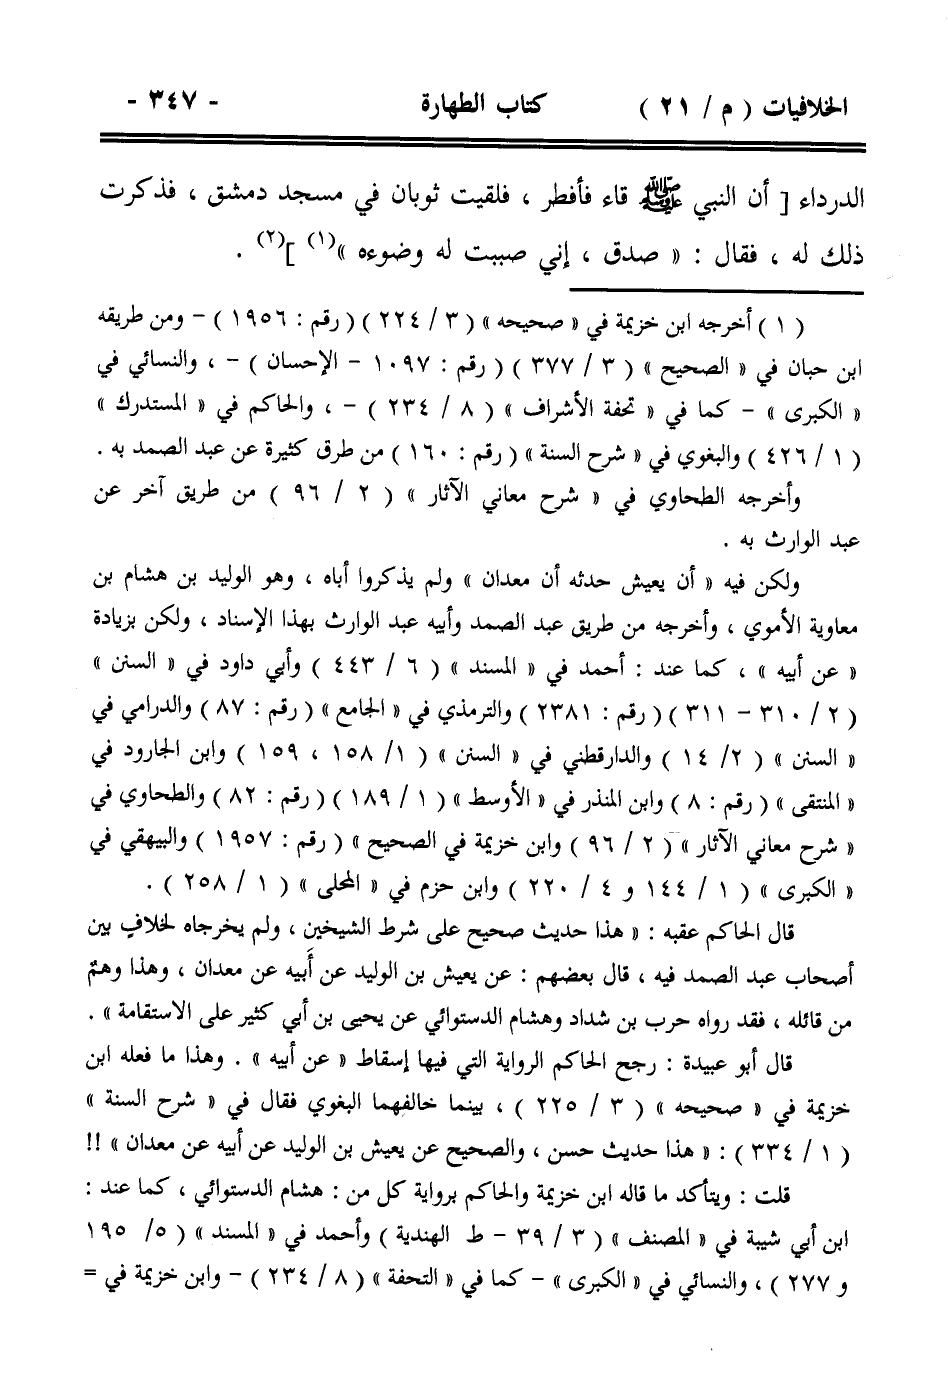 الخلافيات ( م / ٢١ ) كتاب الطهارة - ٣٤٧ -
الدرداء [ أن النبي ﷺ قاء فأفطر ، فلقيت ثوبان في مسجد دمشق ، فذكرت
ذلك له ، فقال : « صدق ، إني صببت له وضوءه »(١) ](٢) .
( ١ ) أخرجه ابن خزيمة في « صحيحه » ( ٣ / ٢٢٤ ) ( رقم : ١٩٥٦ ) - ومن طريقه
ابن حبان في « الصحيح » ( ٣ / ٣٧٧ ) ( رقم : ١٠٩٧ - الإحسان ) - ، والنسائي في
« الكبرى » - كما في « تحفة الأشراف » ( ٨ / ٢٣٤ ) - ، والحاكم في « المستدرك »
( ١ / ٤٢٦ ) والبغوي في « شرح السنة » ( رقم : ١٦٠ ) من طرق كثيرة عن عبد الصمد به .
وأخرجه الطحاوي في « شرح معاني الآثار » ( ٢ / ٩٦ ) من طريق آخر عن
عبد الوارث به .
ولكن فيه « أن يعيش حدثه أن معدان » ولم يذكروا أباه ، وهو الوليد بن هشام بن
معاوية الأموي ، وأخرجه من طريق عبد الصمد وأبيه عبد الوارث بهذا الإسناد ، ولكن بزيادة
« عن أبيه » ، كما عند : أحمد في « المسند » ( ٦ / ٤٤٣ ) وأبي داود في « السنن »
( ٢ / ٣١٠ - ٣١١ ) ( رقم : ٢٣٨١ ) والترمذي في « الجامع » ( رقم : ٨٧ ) والدرامي في
« السنن » ( ٢/ ١٤ ) والدارقطني في « السنن » ( ١/ ١٥٨ ، ١٥٩ ) وابن الجارود في
« المنتقى » ( رقم : ٨ ) وابن المنذر في « الأوسط » ( ١ / ١٨٩ ) ( رقم : ٨٢ ) والطحاوي في
« شرح معاني الآثار » ( ٢ / ٩٦ ) وابن خزيمة في الصحيح » ( رقم : ١٩٥٧ ) والبيهقي في
« الكبرى » ( ١ / ١٤٤ و ٤ / ٢٢٠ ) وابن حزم في « المحلى » ( ١ / ٢٥٨ ) .
قال الحاكم عقبه : « هذا حديث صحيح على شرط الشيخين ، ولم يخرجاه لخلافٍ بين
أصحاب عبد الصمد فيه ، قال بعضهم : عن يعيش بن الوليد عن أَبيه عن معدان ، وهذا وهمٌ
من قائله ، فقد رواه حرب بن شداد وهشام الدستوائي عن يحيى بن أبي كثير على الاستقامة » .
قال أبو عبيدة : رجح الحاكم الرواية التي فيها إسقاط « عن أبيه » . وهذا ما فعله ابن
خزيمة في « صحيحه » ( ٣ / ٢٢٥ ) ، بينما خالفهما البغوي فقال في « شرح السنة »
( ١ / ٣٣٤ ) : « هذا حديث حسن ، والصحيح عن يعيش بن الوليد عن أبيه عن معدان » !!
قلت : ويتأكد ما قاله ابن خزيمة والحاكم برواية كل من : هشام الدستوائي ، كما عند :
ابن أبي شيبة في « المصنف » ( ٣ / ٣٩ - ط الهندية ) وأحمد في « المسند » ( ٥/ ١٩٥
و ٢٧٧ ) ، والنسائي في « الكبرى » - كما في « التحفة » ( ٨ / ٢٣٤ ) - وابن خزيمة في =